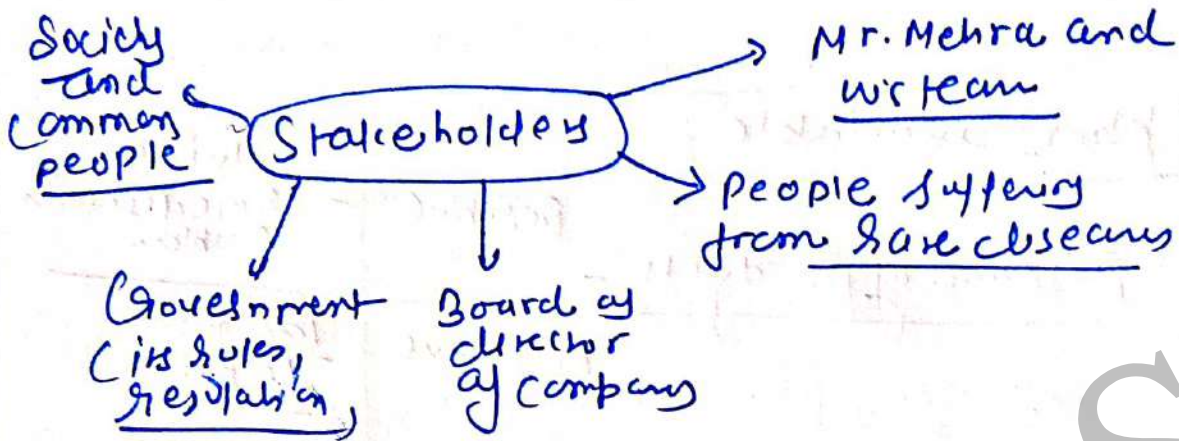 Society
and
common
people
Stakeholders
Mr. Mehra and
his team
People suffering
from rare diseases
Government
(its rules,
regulation)
Board of
director
of company
S